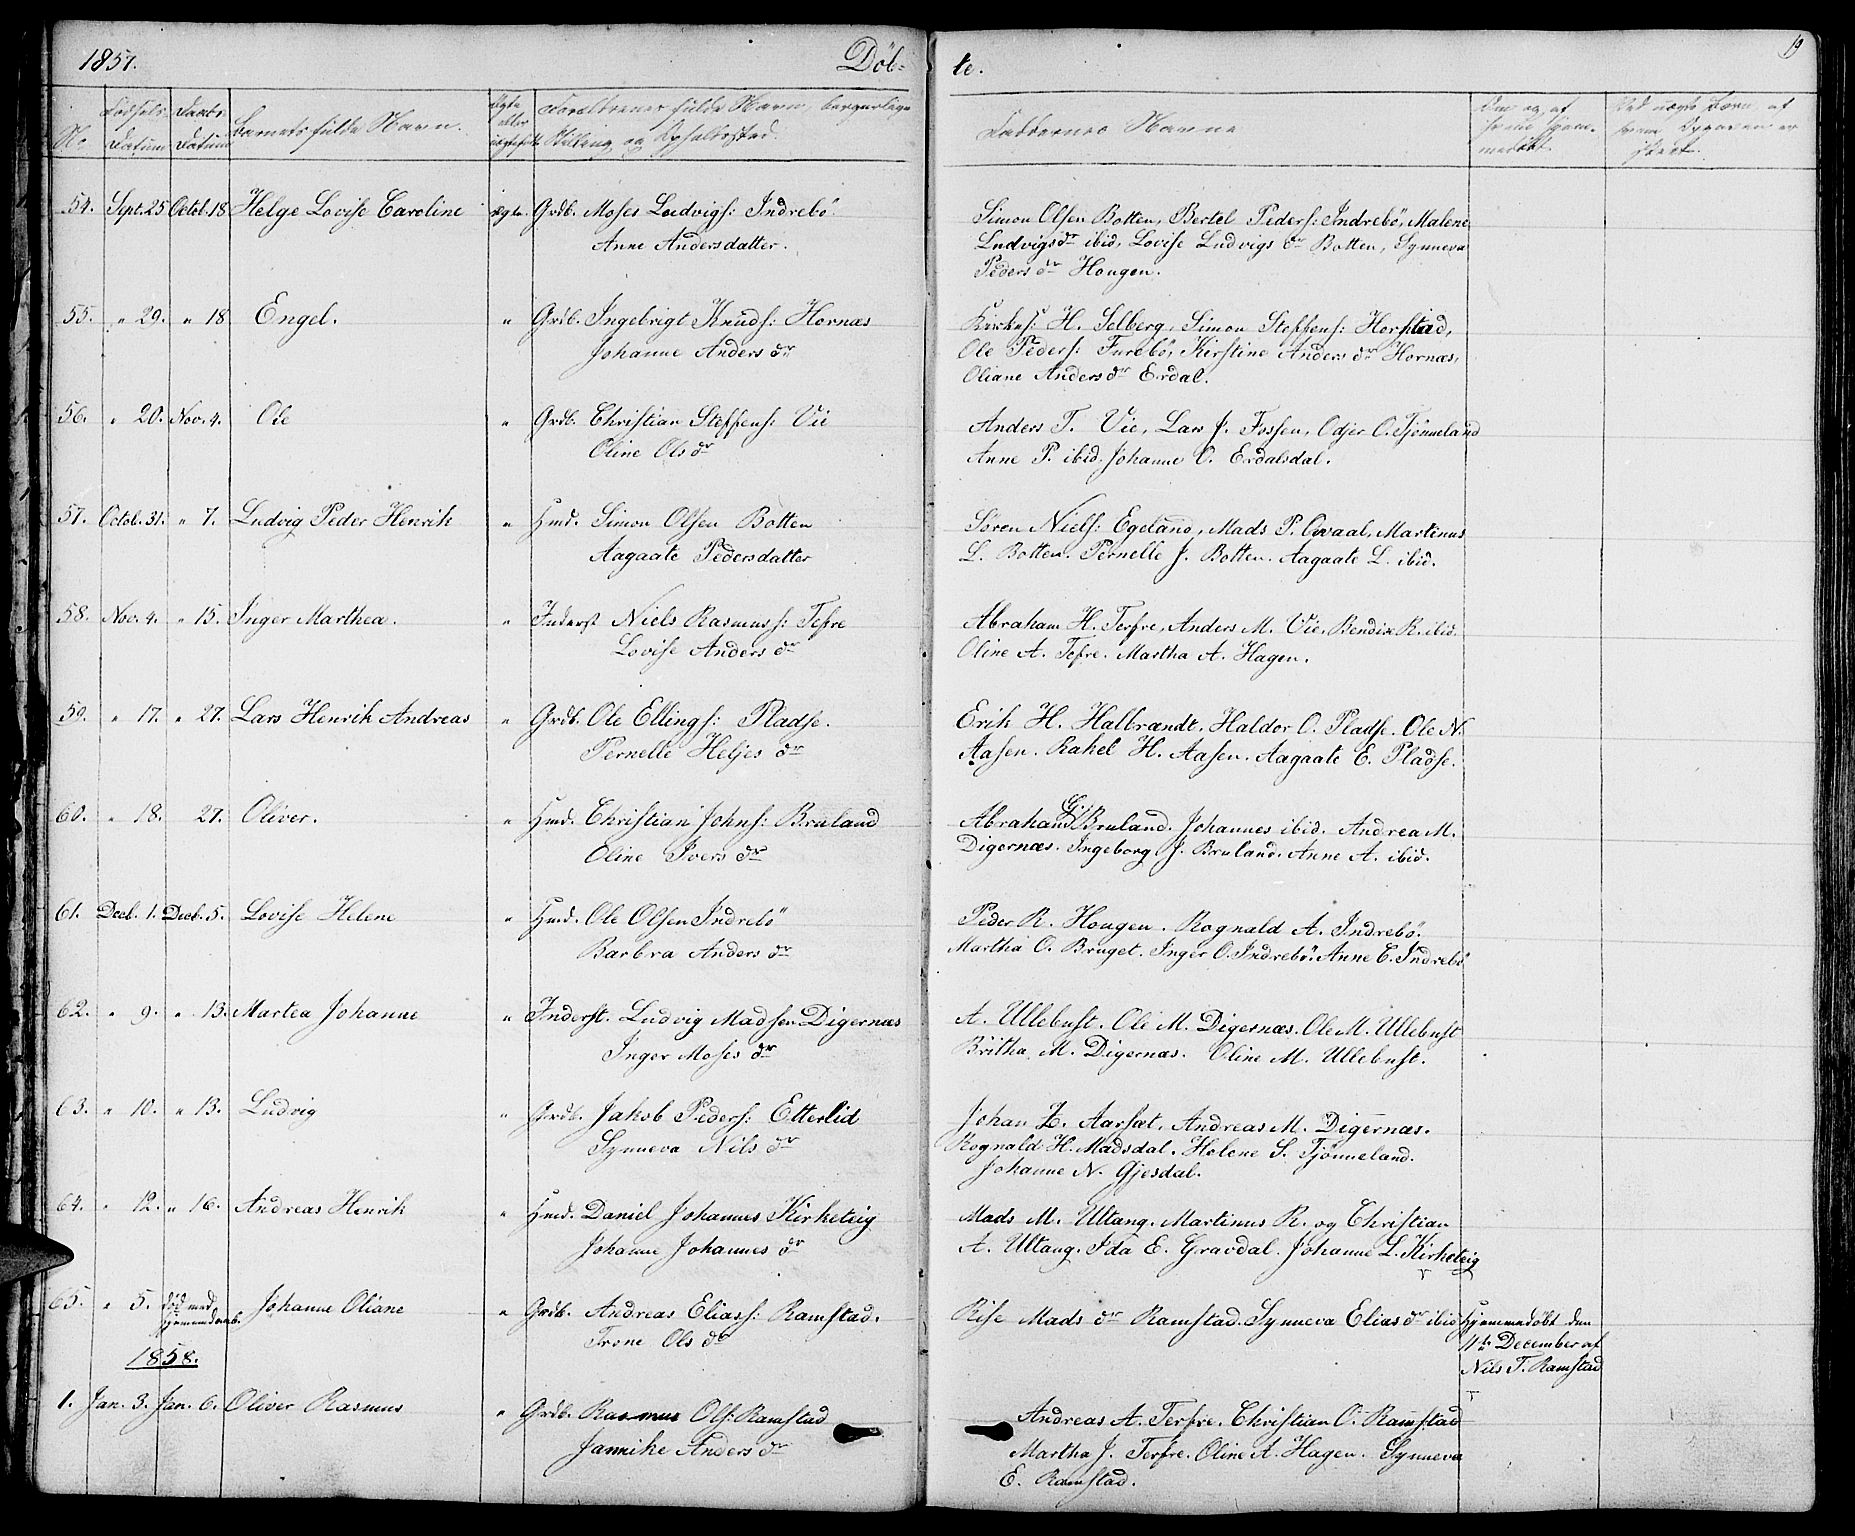 1857. Döb-
te. 19
No Fødsels Datum Daabs Datum Barnets fulde Navn. Ægte eller uægtefødt Forældrenes fulde Navn, borgerlige Stilling og Opholdssted. Faddernes Navne Om og af hvem hjemmedøbt. Ved uægte Børn, af
54. Spt. 25 Octob. 18 Helge Lovise Caroline ægte. Grdb. Moses Ludvigs: Indrebö.
Anne Andersdatter.
Simon Olsen Botten, Bertel Peders: Indrebö, Malene
Ludvigs dr ibid, Lovise Ludvigs dr Botten, Synneva
Peders dr Hougen.
55. " 29. " 18 Engel. " Grdb. Ingebrigt Knuds: Hornæs
Johanne Anders dr
Kirkes: H. Selberg, Simon Steffens: Horstad,
Ole Peders: Furebö, Kirstine Anders dr Hornæs,
Oliane Anders dr Erdal.
56. " 20. Nov. 4. Ole " Grdb. Christian Steffens: Vie
Oline Ols dr
Anders T. Vie, Lars J. Fossen, Odjer O. Tjönneland
Anne P. ibid. Johanne O. Erdalsdal.
57. Octob. 31. " 7. Ludvig Peder Henrik " Hmd. Simon Olsen Botten
Aagaate Pedersdatter
Søren Niels: Egeland, Mads P. Qvaal, Martinus
L. Botten. Pernelle J. Botten. Aagaate L. ibid.
58. Nov. 4. " 15. Inger Marthea. " Inderst Niels Rasmuss: Tefre
Lovise Anders dr
Abraham H. Terfre, Anders M. Vie, Bendix R. ibid.
Oline A. Tefre. Martha A. Hagen.
59. " 17. " 27. Lars Henrik Andreas " Grdb. Ole Ellings: Pladse.
Pernelle Heljes dr
Erik H. Halbrændt, Haldor O. Pladse. Ole N.
Aasen. Rakel H. Aasen. Aagaate E. Pladse.
60. " 18. 27. Oliver. " Hmd. Christian Johns: Bruland
Oline Ivers dr
Abraham Bruland. Johannes ibid. Andrea M.
Digernæs. Ingeborg J. Bruland. Anne A. ibid.
61. Decb. 1. Decb. 5. Lovise Helene " Hmd. Ole Olsen Indrebö
Barbra Anders dr
Peder R. Hougen. Rognald A. Indrebö.
Martha O. Bruget. Inger O. Indrebö. Anne E. Indrebö
62. " 9. " 13. Martea Johanne " Inderst. Ludvig Madsen Digernæs
Inger Moses dr
A. Ullebust. Ole M. Digernæs. Ole M. Ullebust
Britha M. Digernæs. Oline M. Ullebust.
63. " 10. " 13. Ludvig " Grdb. Jakob Peders: Etterlid
Synneva Nils dr
Johan L. Aarsæt, Andreas M. Digernæs.
Rognald H. Madsdal. Helene S. Tjönneland.
Johanne N. Gjesdal.
64. " 12. " 16. Andreas Henrik " Hmd. Daniel Johannes Kirketeig
Johanne Johannes dr
Mads M. Ultang. Martinus R. og Christian
A. Ultang. Ida E. Gravdal. Johanne L. Kirketeig
65. " 5. död med hjemmedaab. Johanne Oliane " Grdb. Andreas Eliass: Ramstad.
Trone Ols dr
Rise Mads dr Ramstad. Synneva Elias dr ibid
Hjemmedöbt den
11te December af
Nils T. Ramstad
1858.
1. Jan. 3. Jan. 6. Oliver Rasmus " Grdb. Rasmus Ols: Ramstad
Jannike Anders dr
Andreas A. Terfre. Christian O. Ramstad
Martha J. Terfre. Oline A. Hagen. Synneva
E. Ramstad.